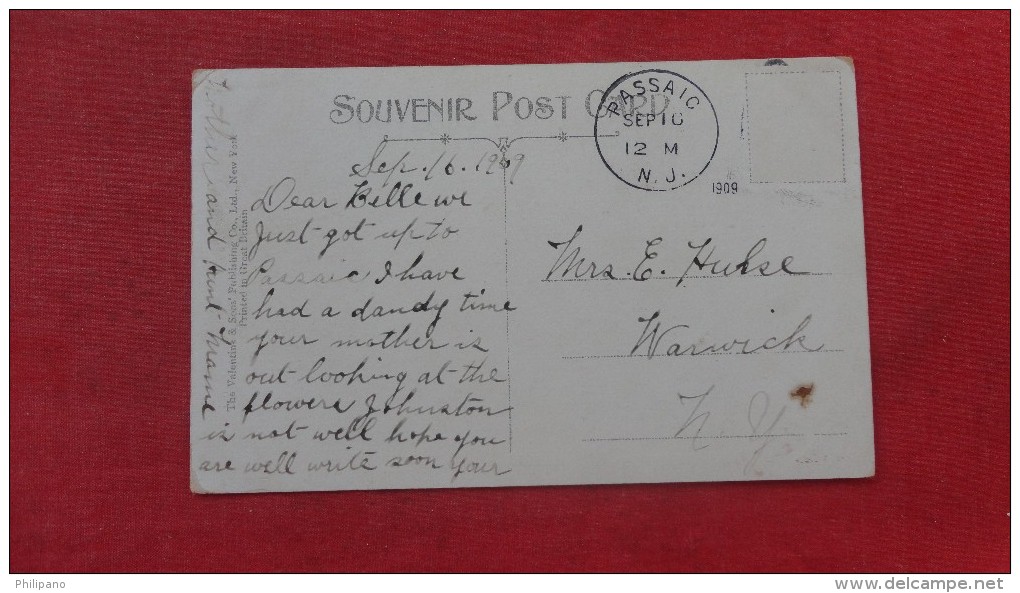 SOUVENIR POST CARD
PASSAIC
SEP 16
12 M
N.J.
1909
Sep. 16. 1909
Dear Belle we
Just got up to
Passaic I have
had a dandy time
your mother is
out looking at the
flowers Johnston
is not well hope you
are well write soon your
and Aunt Mame
The Valentine & Sons' Publishing Co., Ltd., New York
Printed in Great Britain
Mrs. E. Hulse
Warwick
N. Y.
Philipano
www.delcampe.net